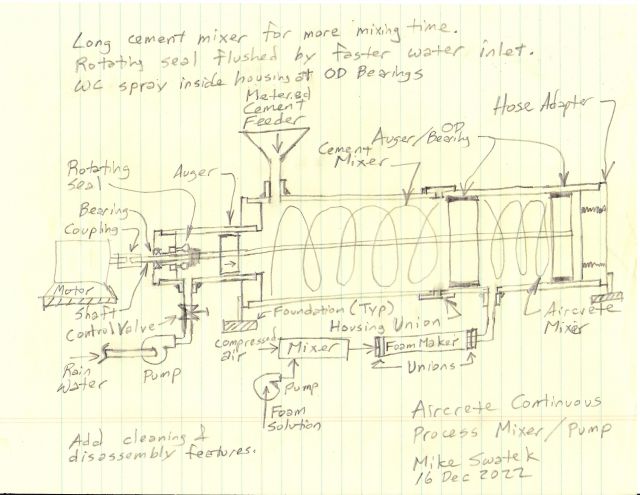 Long cement mixer for more mixing time.
Rotating seal flushed by faster water inlet.
WC spray inside housing at OD Bearings
Metered
Cement
Feeder
Hose Adapter
Auger/OD
Bearing
Cement
Mixer
Rotating
Seal
Auger
Bearing
Coupling
Motor
Shaft
Control Valve
Foundation (Typ)
Housing Union
Aircrete
Mixer
Compressed
air
Mixer
Foam Maker
Unions
Rain
Water
Pump
Pump
Foam
Solution
Add cleaning &
disassembly features.
Aircrete Continuous
Process Mixer/Pump
Mike Swatek
16 Dec 2022